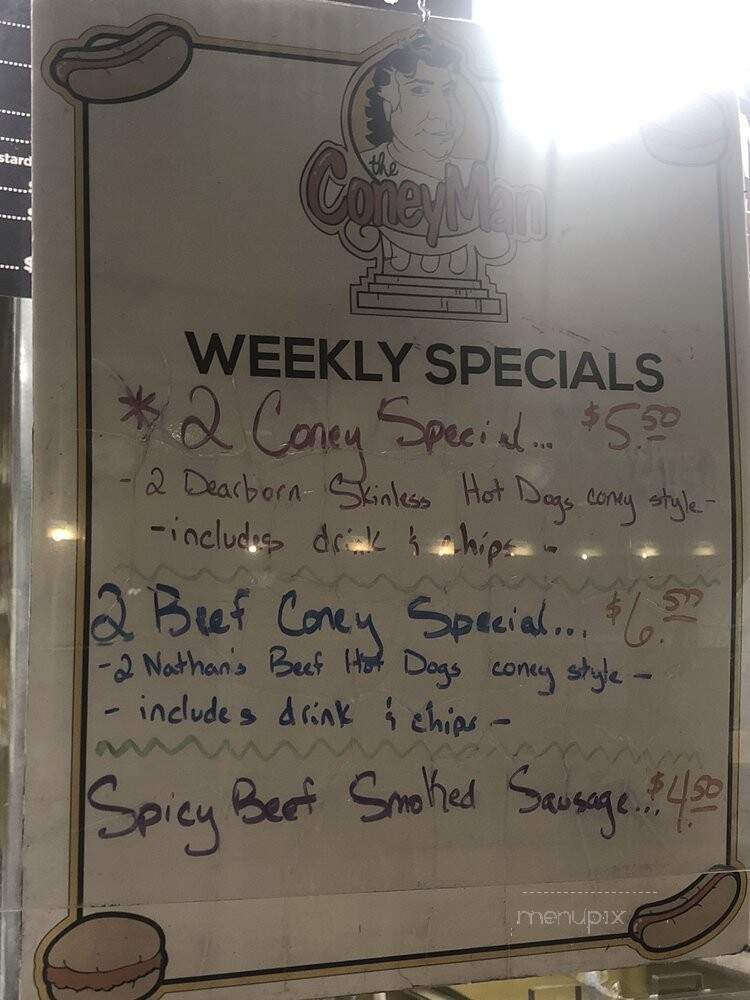 stard
the
ConeyMan
WEEKLY SPECIALS
* 2 Coney Special... $5.50
- 2 Dearborn Skinless Hot Dogs coney style -
- includes drink & chips -
2 Beef Coney Special... $6.50
- 2 Nathan's Beef Hot Dogs coney style -
- includes drink & chips -
Spicy Beef Smoked Sausage... $4.50
menupix